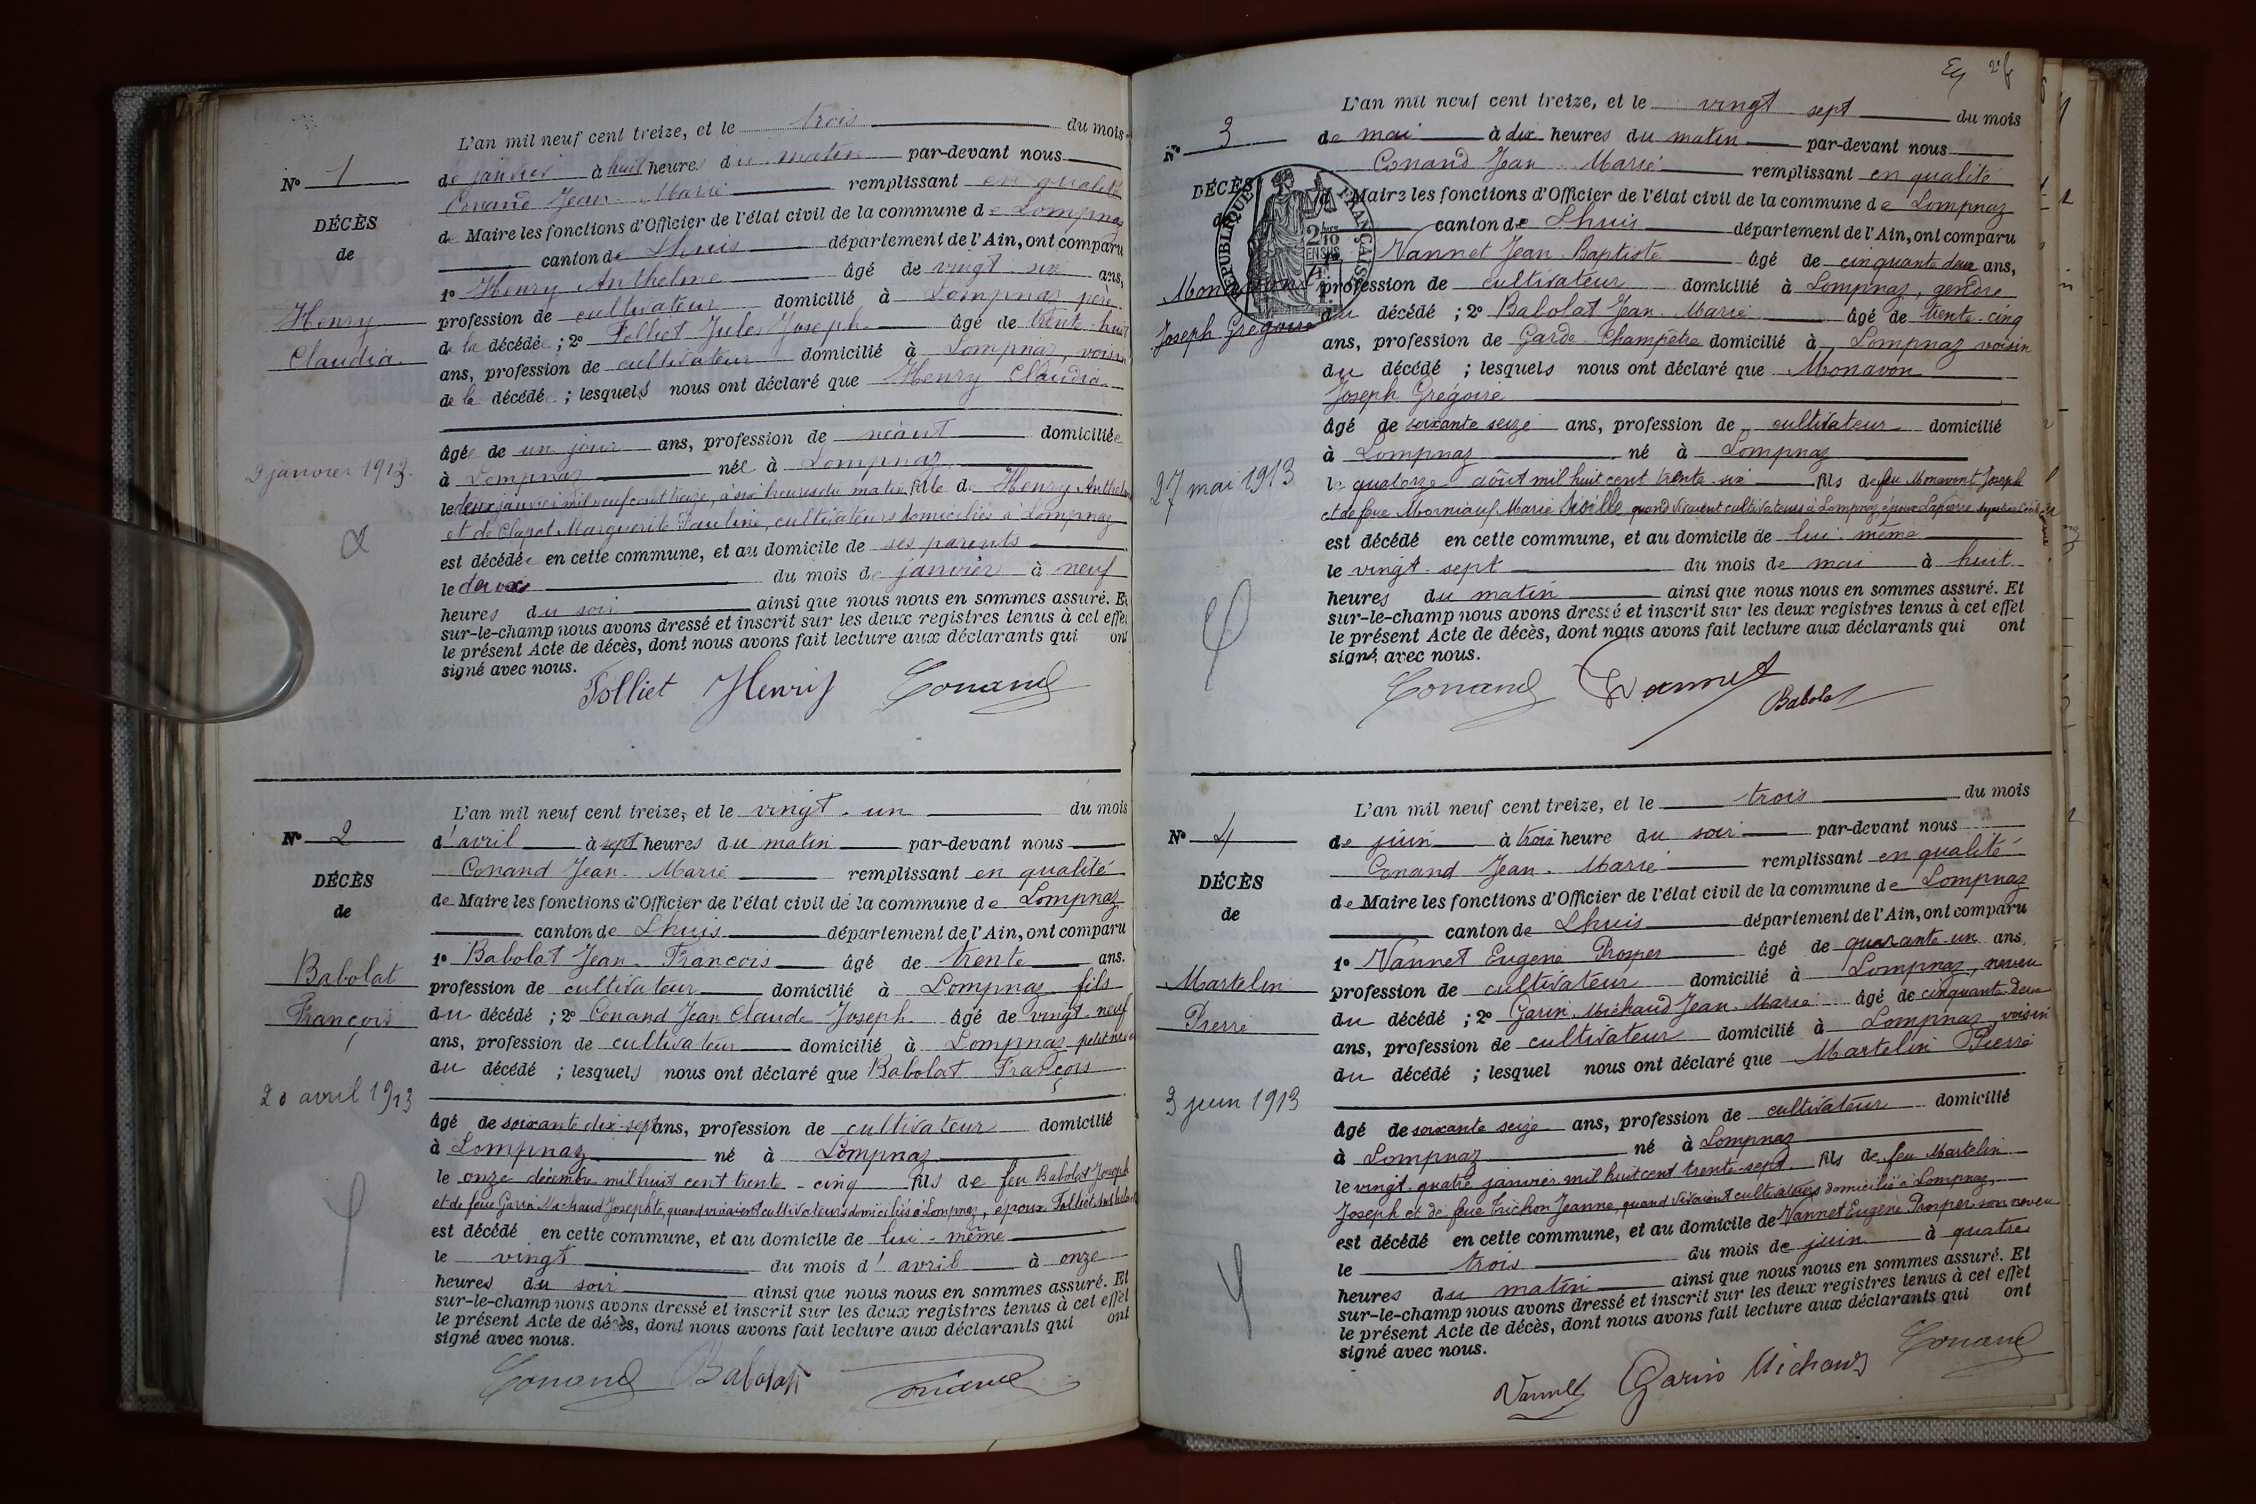 L'an mil neuf cent treize, et le trois du mois
N° 1
de janvier à huit heures du matin par-devant nous
Conand Jean-Marie remplissant en qualité
DÉCÈS
de Maire les fonctions d'Officier de l'état civil de la commune de Lompnaz
de
canton de Lhuis département de l'Ain, ont comparu
1° Henry Anthelme âgé de vingt-six ans,
Henry
profession de cultivateur domicilié à Lompnaz, père
Claudia
de la décédée ; 2° Tolliet Jules Joseph âgé de trente-huit
ans, profession de cultivateur domicilié à Lompnaz, voisin
de la décédée ; lesquels nous ont déclaré que Henry Claudia
âgée de un jour ans, profession de néant domiciliée
2 janvier 1913.
à Lompnaz née à Lompnaz
le deux janvier mil neuf cent treize, à six heures du matin, fille de Henry Anthelme
et de Clapot Marguerite Pauline, cultivateurs domiciliés à Lompnaz
est décédée en cette commune, et au domicile de ses parents
le deux du mois de janvier à neuf
heures du soir ainsi que nous nous en sommes assuré. Et
sur-le-champ nous avons dressé et inscrit sur les deux registres tenus à cet effet
le présent Acte de décès, dont nous avons fait lecture aux déclarants qui ont
signé avec nous.
Tolliet Henry Conand
L'an mil neuf cent treize, et le vingt-un du mois
N° 2
d'avril à sept heures du matin par-devant nous
Conand Jean-Marie remplissant en qualité
DÉCÈS
de Maire les fonctions d'Officier de l'état civil de la commune de Lompnaz
de
canton de Lhuis département de l'Ain, ont comparu
1° Babolat Jean-François âgé de trente ans.
Babolat
profession de cultivateur domicilié à Lompnaz fils
François
du décédé ; 2° Conand Jean Claude Joseph âgé de vingt-neuf
ans, profession de cultivateur domicilié à Lompnaz petit neveu
du décédé ; lesquels nous ont déclaré que Babolat François
20 avril 1913
âgé de soixante dix-sept ans, profession de cultivateur domicilié
à Lompnaz né à Lompnaz
le onze décembre mil huit cent trente-cinq fils de feu Babolat Joseph
et de feue Garin Michaud Josephte, quand vivaient cultivateurs domiciliés à Lompnaz, époux Tolliet
est décédé en cette commune, et au domicile de lui-même
le vingt du mois d'avril à onze
heures du soir ainsi que nous nous en sommes assuré. Et
sur-le-champ nous avons dressé et inscrit sur les deux registres tenus à cet effet
le présent Acte de décès, dont nous avons fait lecture aux déclarants qui ont
signé avec nous.
Conand Babolat Conand
L'an mil neuf cent treize, et le vingt sept du mois
N° 3
de mai à dix heures du matin par-devant nous
Conand Jean-Marie remplissant en qualité
DÉCÈS
de Maire les fonctions d'Officier de l'état civil de la commune de Lompnaz
de
RÉPUBLIQUE FRANÇAISE
canton de Lhuis département de l'Ain, ont comparu
Vannet Jean-Baptiste âgé de cinquante deux ans,
Monavon
profession de cultivateur domicilié à Lompnaz, gendre
Joseph Grégoire
du décédé ; 2° Babolat Jean-Marie âgé de trente-cinq
ans, profession de Garde-Champêtre domicilié à Lompnaz voisin
du décédé ; lesquels nous ont déclaré que Monavon
Joseph Grégoire
âgé de soixante seize ans, profession de cultivateur domicilié
à Lompnaz né à Lompnaz
27 mai 1913
le quatorze août mil huit cent trente-six fils de feu Monavont Joseph
et de feue Marie quand vivaient cultivateurs à Lompnaz, époux
est décédé en cette commune, et au domicile de lui-même
le vingt-sept du mois de mai à huit
heures du matin ainsi que nous nous en sommes assuré. Et
sur-le-champ nous avons dressé et inscrit sur les deux registres tenus à cet effet
le présent Acte de décès, dont nous avons fait lecture aux déclarants qui ont
signé avec nous.
Conand Vannet Babolat
L'an mil neuf cent treize, et le trois du mois
N° 4
de juin à trois heure du soir par-devant nous
Conand Jean-Marie remplissant en qualité
DÉCÈS
de Maire les fonctions d'Officier de l'état civil de la commune de Lompnaz
de
canton de Lhuis département de l'Ain, ont comparu
1° Vannet Eugène Prosper âgé de quarante-un ans,
Martelin
profession de cultivateur domicilié à Lompnaz, neveu
Pierre
du décédé ; 2° Garin-Michaud Jean-Marie âgé de cinquante-deux
ans, profession de cultivateur domicilié à Lompnaz, voisin
du décédé ; lesquel nous ont déclaré que Martelin Pierre
3 juin 1913
âgé de soixante seize ans, profession de cultivateur domicilié
à Lompnaz né à Lompnaz
le vingt-quatre janvier mil huit cent trente-sept fils de feu Martelin
Joseph et de feue Trichon Jeanne, quand vivaient cultivateurs domicilié à Lompnaz,
est décédé en cette commune, et au domicile de Vannet Eugène Prosper son neveu
le trois du mois de juin à quatre
heures du matin ainsi que nous nous en sommes assuré. Et
sur-le-champ nous avons dressé et inscrit sur les deux registres tenus à cet effet
le présent Acte de décès, dont nous avons fait lecture aux déclarants qui ont
signé avec nous.
Vannet Garin Michaud Conand